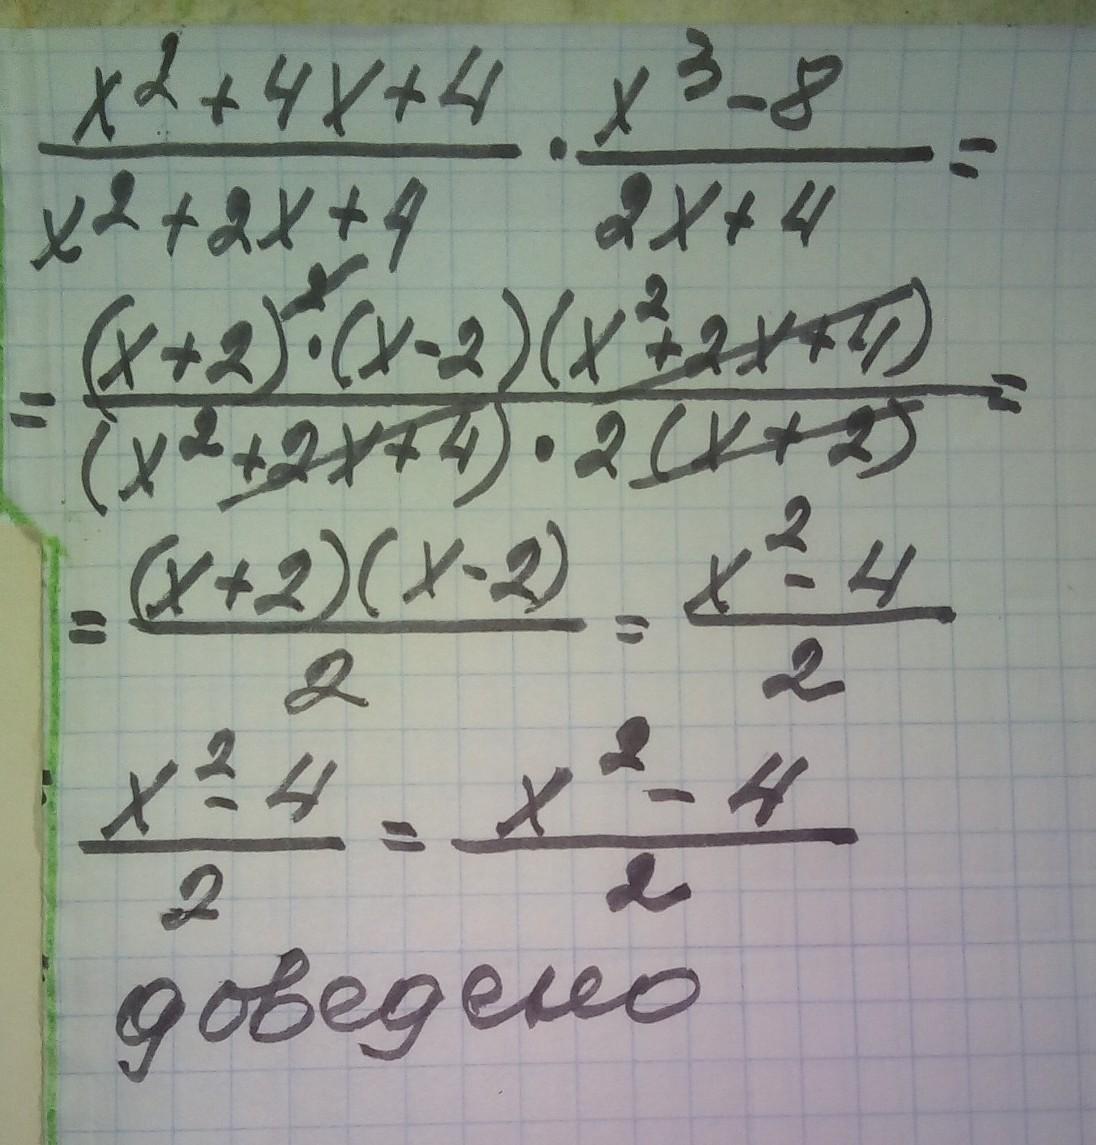 x²+4x+4 / x²+2x+4 · x³-8 / 2x+4 =
= (x+2)²·(x-2)(x²+2x+4) / (x²+2x+4)·2(x+2) =
= (x+2)(x-2) / 2 = x²-4 / 2
x²-4 / 2 = x²-4 / 2
доведено